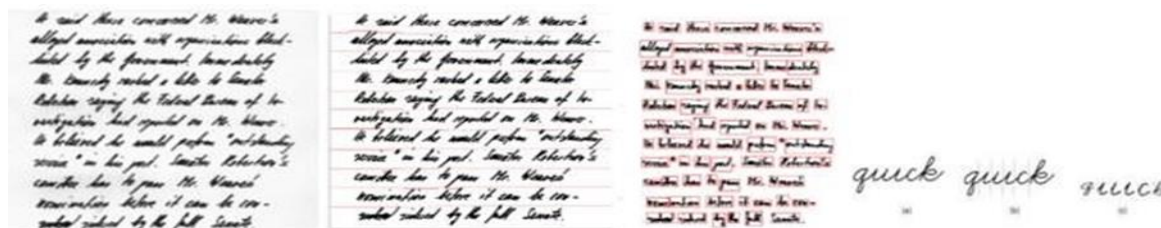 It said these concerned Mr. Weaver's
alleged association with organisations black-
listed by the Government. Immediately
Mr. Kennedy rushed a letter to Senator
Robertson saying the Federal Bureau of In-
vestigation had reported on Mr. Weaver.
He believed he would perform "outstanding
service" in his post. Senator Robertson's
committee has to pass Mr. Weaver's
nomination before it can be con-
sidered by the full Senate.
It said these concerned Mr. Weaver's
alleged association with organisations black-
listed by the Government. Immediately
Mr. Kennedy rushed a letter to Senator
Robertson saying the Federal Bureau of In-
vestigation had reported on Mr. Weaver.
He believed he would perform "outstanding
service" in his post. Senator Robertson's
committee has to pass Mr. Weaver's
nomination before it can be con-
sidered by the full Senate.
It said these concerned Mr. Weaver's
alleged association with organisations black-
listed by the Government. Immediately
Mr. Kennedy rushed a letter to Senator
Robertson saying the Federal Bureau of In-
vestigation had reported on Mr. Weaver.
He believed he would perform "outstanding
service" in his post. Senator Robertson's
committee has to pass Mr. Weaver's
nomination before it can be con-
sidered by the full Senate.
quick quick quick